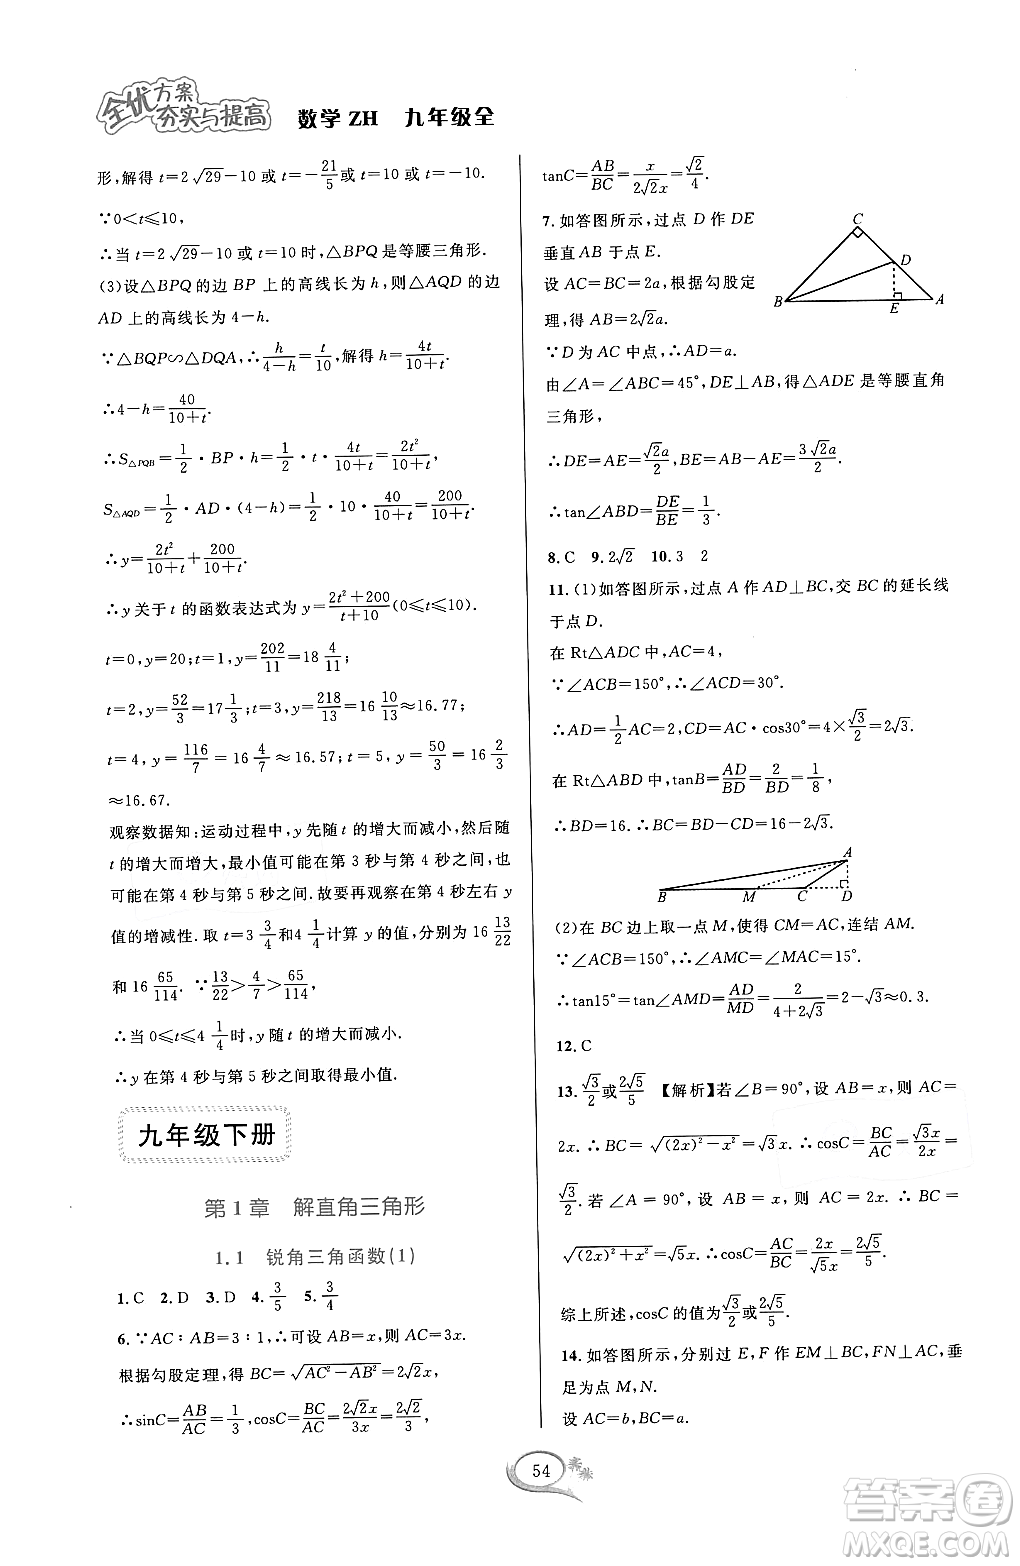 全优方案
夯实与提高
数学 ZH 九年级全
形,解得 t=2√29-10 或 t=-21/5 或 t=10 或 t=-10.
∵0<t≤10,
∴当 t=2√29-10 或 t=10 时,△BPQ 是等腰三角形.
(3)设△BPQ 的边 BP 上的高线长为 h,则△AQD 的边
AD 上的高线长为 4-h.
∵△BQP∽△DQA,∴h/(4-h)=t/10,解得 h=4t/(10+t).
∴4-h=40/(10+t).
∴S△PQB=1/2·BP·h=1/2·t·4t/(10+t)=2t²/(10+t),
S△AQD=1/2·AD·(4-h)=1/2·10·40/(10+t)=200/(10+t).
∴y=2t²/(10+t)+200/(10+t).
∴y 关于 t 的函数表达式为 y=(2t²+200)/(t+10)(0≤t≤10).
t=0,y=20;t=1,y=202/11=18 4/11;
t=2,y=52/3=17 1/3;t=3,y=218/13=16 10/13≈16.77;
t=4,y=116/7=16 4/7≈16.57;t=5,y=50/3=16 2/3
≈16.67.
观察数据知:运动过程中,y 先随 t 的增大而减小,然后随
t 的增大而增大,最小值可能在第 3 秒与第 4 秒之间,也
可能在第 4 秒与第 5 秒之间.故要再观察在第 4 秒左右 y
值的增减性.取 t=3 3/4 和4 1/4 计算 y 的值,分别为 16 13/22
和 16 65/114.∵13/22>4/7>65/114,
∴当 0≤t≤4 1/4 时,y 随 t 的增大而减小.
∴y 在第 4 秒与第 5 秒之间取得最小值.
九年级下册
第 1 章 解直角三角形
1.1 锐角三角函数(1)
1.C 2.D 3.D 4.3/5 5.3/4
6.∵AC∶AB=3∶1,∴可设 AB=x,则 AC=3x.
根据勾股定理,得 BC=√(AC²-AB²)=2√2x.
∴sinC=AB/AC=1/3,cosC=BC/AC=2√2x/3x=2√2/3,
tanC=AB/BC=x/2√2x=√2/4.
7.如答图所示,过点 D 作 DE
垂直 AB 于点 E.
设 AC=BC=2a,根据勾股定
理,得 AB=2√2a.
∵D 为 AC 中点,∴AD=a.
C
D
B
E
A
由∠A=∠ABC=45°,DE⊥AB,得△ADE 是等腰直角
三角形,
∴DE=AE=√2a/2,BE=AB-AE=3√2a/2.
∴tan∠ABD=DE/BE=1/3.
8.C 9.2√2 10.3 2
11.(1)如答图所示,过点 A 作 AD⊥BC,交 BC 的延长线
于点 D.
在 Rt△ADC 中,AC=4,
∵∠ACB=150°,∴∠ACD=30°.
∴AD=1/2AC=2,CD=AC·cos30°=4×√3/2=2√3.
在 Rt△ABD 中,tanB=AD/BD=2/BD=1/8,
∴BD=16.∴BC=BD-CD=16-2√3.
A
B M C D
(2)在 BC 边上取一点 M,使得 CM=AC,连结 AM.
∵∠ACB=150°,∴∠AMC=∠MAC=15°.
∴tan15°=tan∠AMD=AD/MD=2/(4+2√3)=2-√3≈0.3.
12.C
13.√3/2或2√5/5 【解析】若∠B=90°,设 AB=x,则 AC=
2x.∴BC=√((2x)²-x²)=√3x.∴cosC=BC/AC=√3x/2x=
√3/2.若∠A=90°,设 AB=x,则 AC=2x.∴BC=
√((2x)²+x²)=√5x.∴cosC=AC/BC=2x/√5x=2√5/5.
综上所述,cosC 的值为√3/2或2√5/5.
14.如答图所示,分别过 E,F 作 EM⊥BC,FN⊥AC,垂
足为点 M,N.
设 AC=b,BC=a.
54
答案圈
MXQE.COM